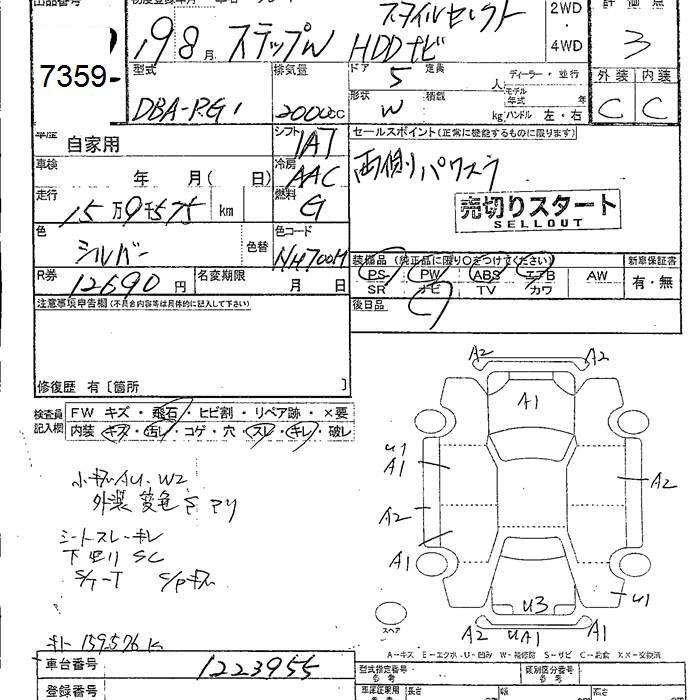 出品番号 初度登録年月 評価点
7359-
19 8月 ステップW スタイルセレクト 2WD・4WD 3
HDDナビ
型式 排気量 ドア 定員 ディーラー・並行 外装 内装
DBA-RG1 2000cc 5 人 モデル年式 年 C C
形状 W 積載 kg ハンドル 左・右
車歴 自家用 シフト IAT セールスポイント(正常に機能するものに限ります)
車検 年 月( 日) 冷房 AAC 両側パワスラ
走行 15万9千575 km 燃料 G 売切りスタート
SELLOUT
色 シルバー 色替 色コード NH700M
装備品(純正品に限り○をつけてください) 新車保証書
R券 12690円 名変期限 月 日 PS PW ABS エアB AW 有・無
SR ナビ TV カワ
注意事項申告欄(不具合内容等は具体的に記入して下さい) 後日品
修復歴 有〔箇所 〕
検査員記入欄 FW キズ・飛石・ヒビ割・リペア跡・×要
内装 キズ・汚レ・コゲ・穴・スレ・キレ・破レ
A2 A2
A1
U1
A1
A2
A2
A1
U1
U3
A2 U A1 A1
小キズAU.W2
外装 変色
シートスレ・キレ
下廻り SC
スペア
キロ 159,576 K
A-キズ E-エクボ U-凹み W-補修跡 S-サビ C-腐食 XX-交換済
車台番号 1223955 型式指定番号 参考 類別区分番号 参考
登録番号 長さ 幅 高さ